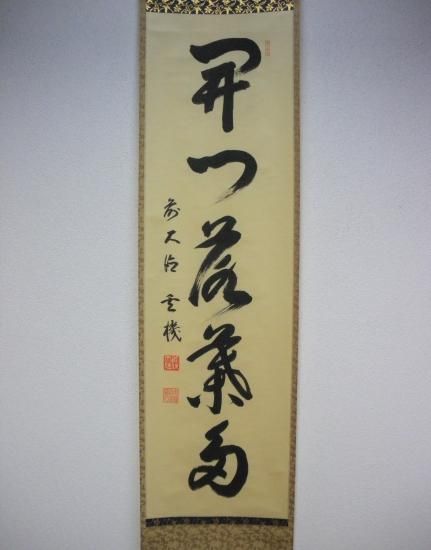 開門落葉多
前大徳雲機